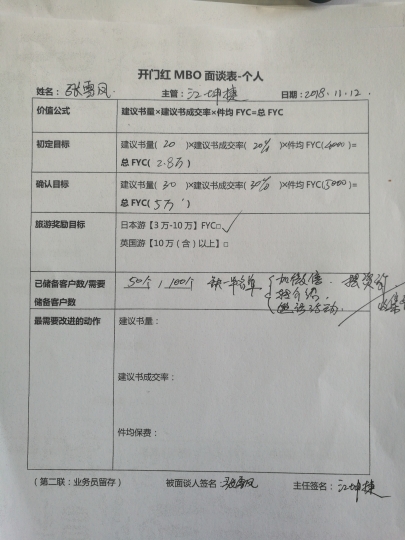 开门红 MBO 面谈表-个人
姓名：张雪凤 主管：江坤捷 日期：2018.11.12.
价值公式 建议书量×建议书成交率×件均 FYC=总 FYC
初定目标 建议书量( 20 )×建议书成交率( 20% )×件均 FYC(4000)=
总 FYC( 2.8万 )
确认目标 建议书量( 30 )×建议书成交率( 30% )×件均 FYC(5000)=
总 FYC( 5万 )
旅游奖励目标 日本游【3 万-10 万】FYC□✓
英国游【10 万（含）以上】□
已储备客户数/需要 50个/100个 缺一半名单 加微信
储备客户数 转介绍
邀请活动
最需要改进的动作 建议书量：
建议书成交率：
件均保费：
（第二联：业务员留存） 被面谈人签名：张雪凤 主任签名：江坤捷